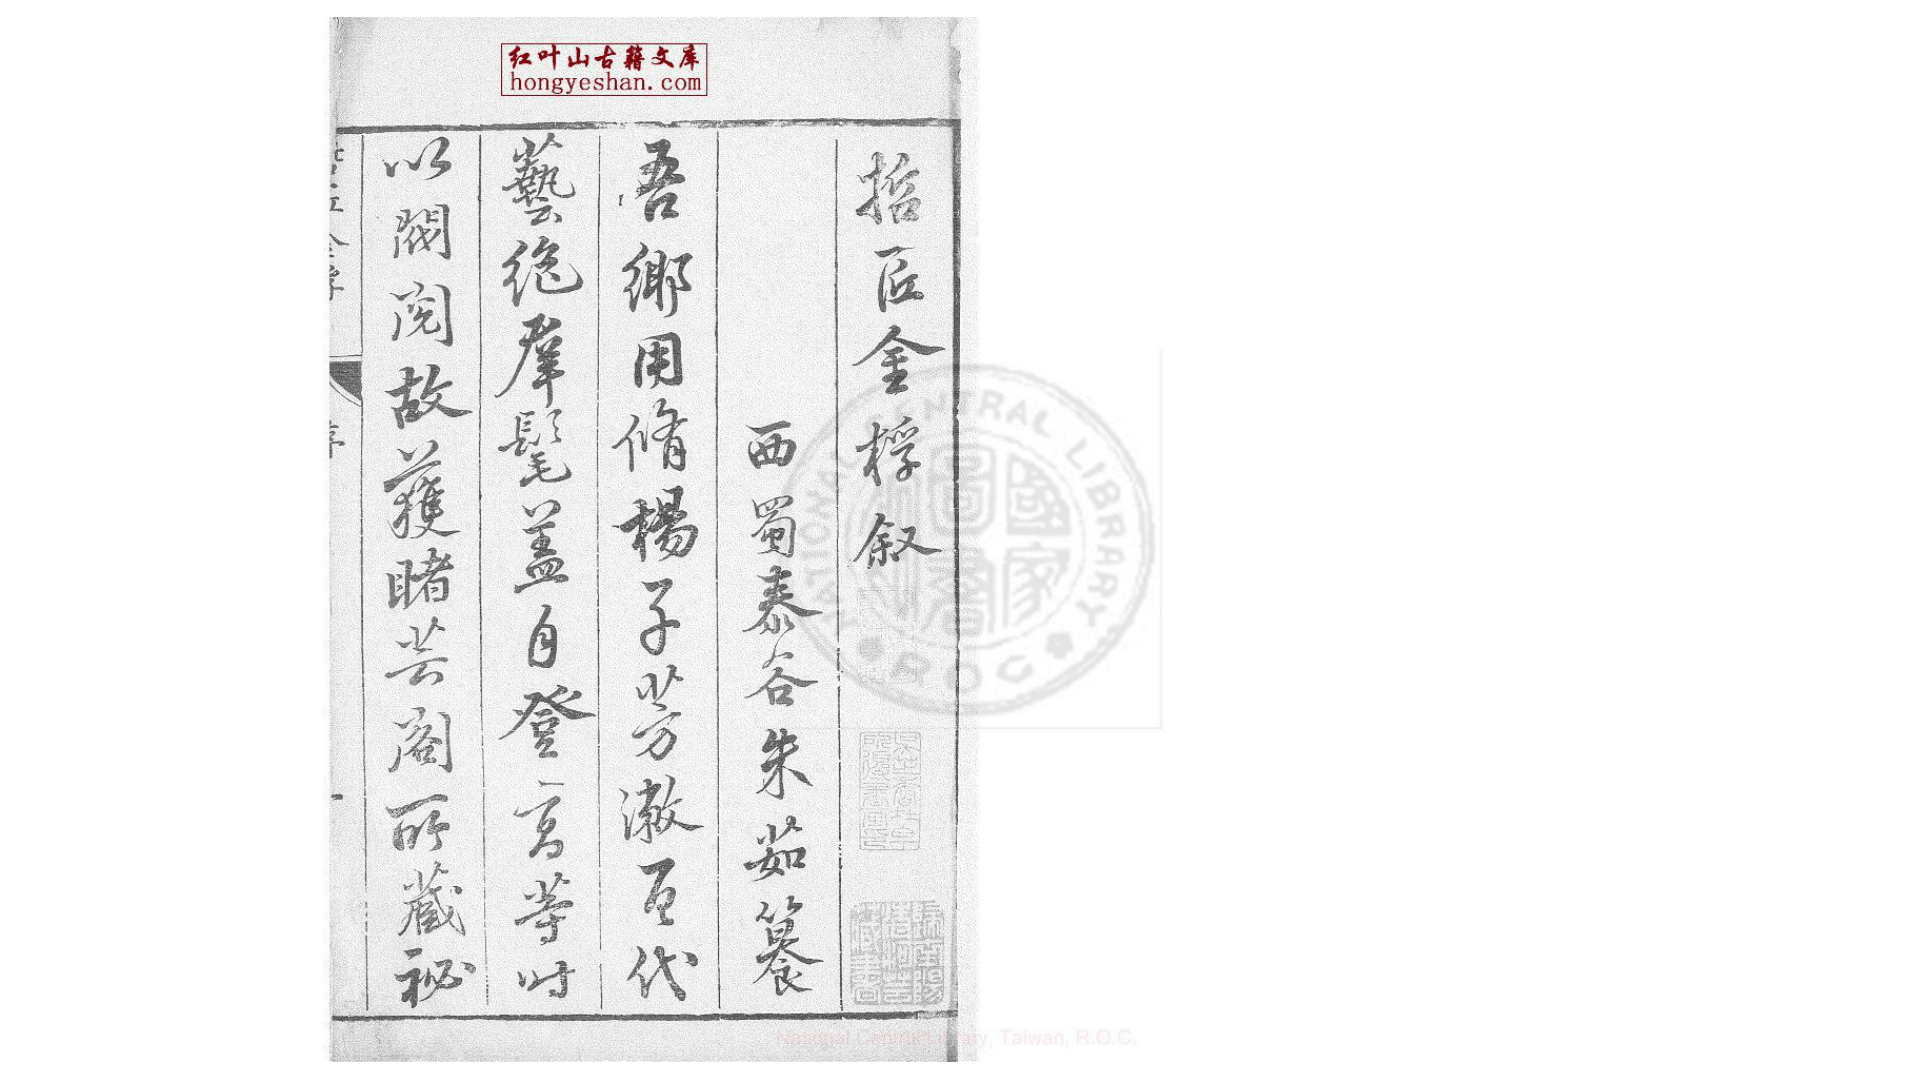 红叶山古籍文庫
hongyeshan.com
哲匠金桴叙
西蜀泰谷朱茹篹
吾鄉用脩楊子芳潄百代
藝絶羣髦盖自登高等时
以閥閱故獲睹芸閣所藏秘
NATIONAL CENTRAL LIBRARY
R.O.C.
國家圖書
National Central Library, Taiwan, R.O.C.